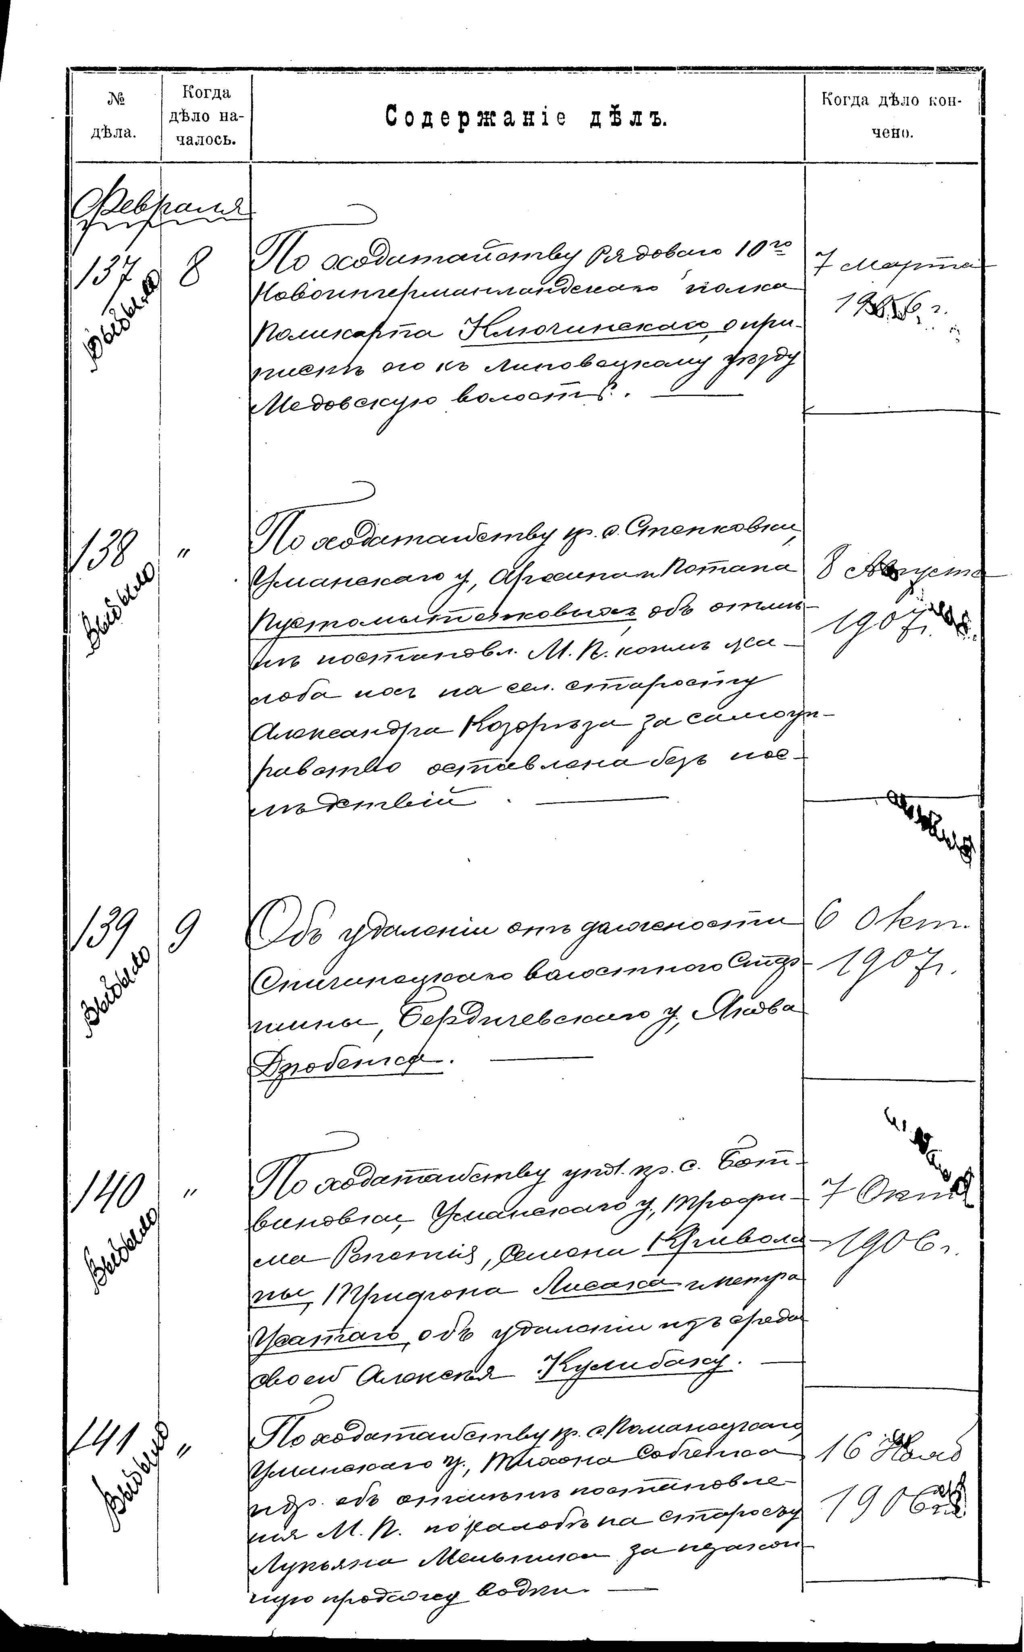 № дѣла.
Когда дѣло на-
чалось.
Содержаніе дѣлъ.
Когда дѣло кон-
чено.
Февраля
137
Выбыло
8
По ходатайству рядоваго 10го
Новоингерманландскаго полка
Поликарпа Ключинскаго, о при-
пискѣ его къ Липовецкому уѣзду
Медовскую волость.
7 Марта
1906 г.
138
Выбыло
"
По ходатайству кр. с. Степковки,
Уманскаго у, Архипа и Потапа
объ отмѣ-
нѣ постановл. М. П. коимъ жа-
лоба ихъ на сел. старосту
Александра Козоріза за самоуп-
равство оставлена безъ пос-
лѣдствій.
8 Августа
1907 г.
139
Выбыло
9
Объ удаленіи отъ должности
Спичинецкаго волостного Стар-
шины, Бердичевскаго у, Якова
Дзюбенка.
6 Окт.
1907 г.
140
Выбыло
"
По ходатайству упол. кр. с. Бот-
виновки, Уманскаго у, Трофи-
ма Семена Кривола-
пы, Трифона Лисака и Петра
Усатаго, объ удаленіи изъ среды
своей Алексѣя Кулибабу.
7 Окт.
1906 г.
141
Выбыло
"
По ходатайству кр. с. Романовки
Уманскаго у., Тихона Собченка
и др. объ отмѣнѣ постановле-
нія М. П. по жалобѣ на старосту
Лукьяна Мельника за незакон-
ную продажу водки.
16 Нояб
1906 г.